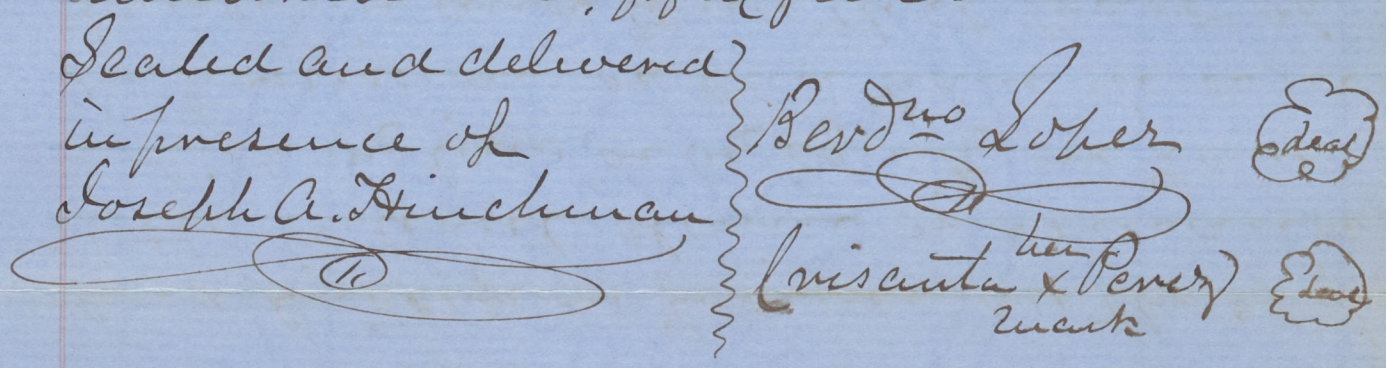 Sealed and delivered
in presence of
Joseph A. Hinchman
Berdno Lopez
Seal
Crisanta her x Perez
mark
Seal